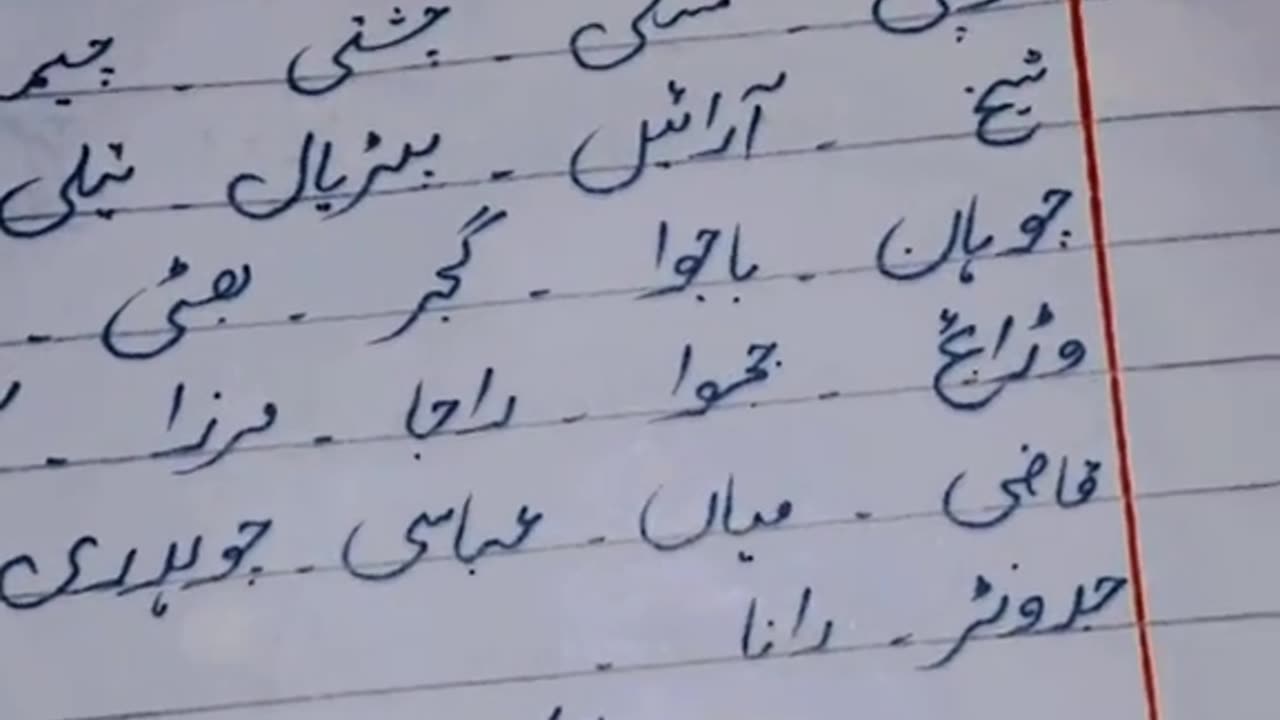 چشتی - چیمہ
شیخ - آرائیں - بھڑیال - تیلی
چوہان - باجوا - گجر - بھٹی -
وڑائچ - جموا - راجا - مرزا -
قاضی - میاں - عباسی - چوہدری
جدونٹر - رانا -